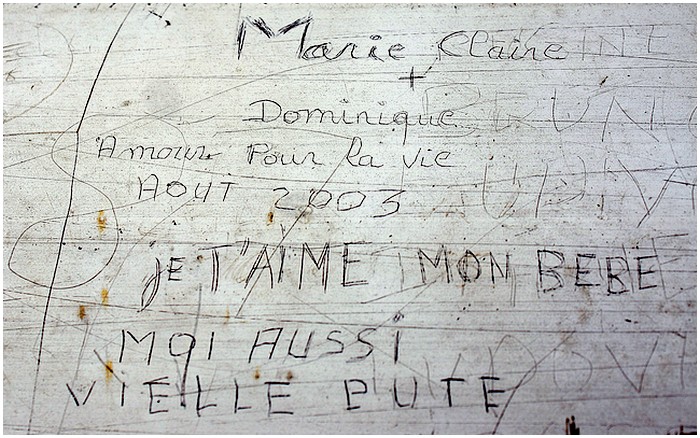 Marie Claire
+
Dominique
Amour Pour la vie
AOUT 2003
je T'AIME MON BEBE
MOI AUSSI
VIELLE PUTE